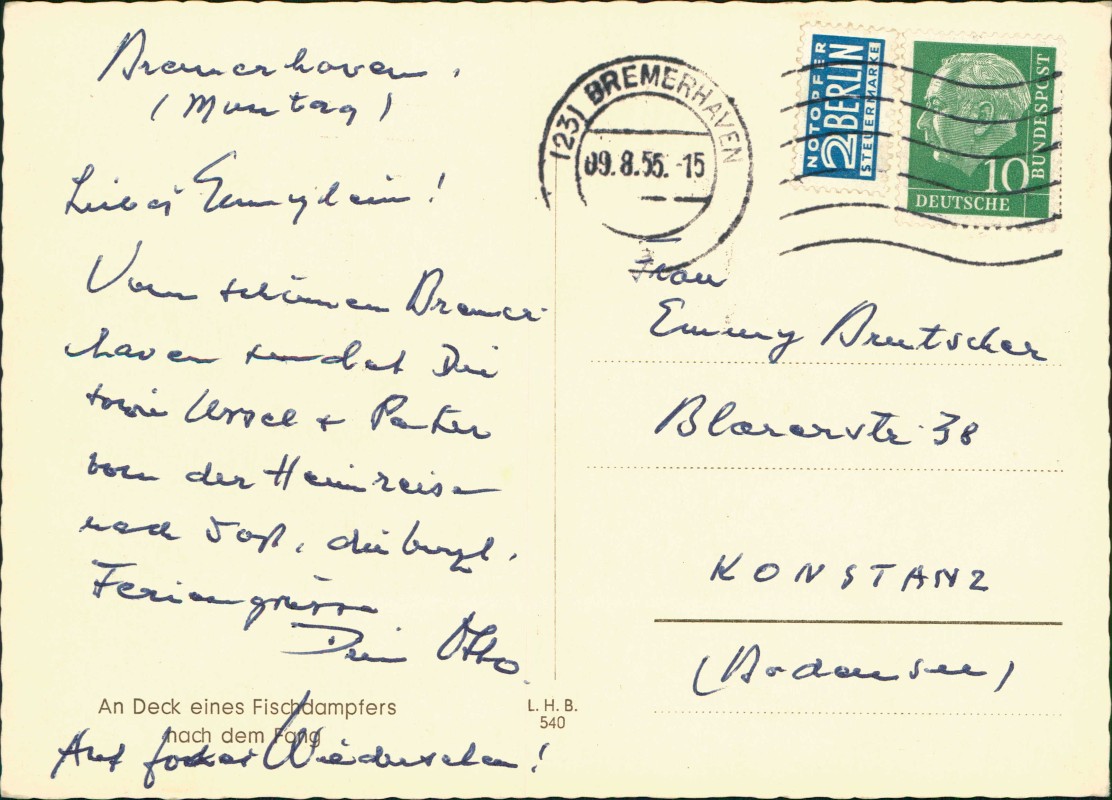 Bremerhaven.
(Montag)
Liebes Emmylein!
Vom schönen Bremer-
haven sendet Dir
sowie Ursel + Peter
von der Heimreise
nach
Feriengrüsse
Dein Otto.
Auf Wiedersehen!
An Deck eines Fischdampfers
nach dem Fang
L. H. B.
540
(23) BREMERHAVEN
09.8.55.-15
NOTOPFER
2 BERLIN
STEUERMARKE
10
DEUTSCHE
BUNDESPOST
Frau
Emmy Brutscher
Blarerstr. 38
KONSTANZ
(Bodensee)